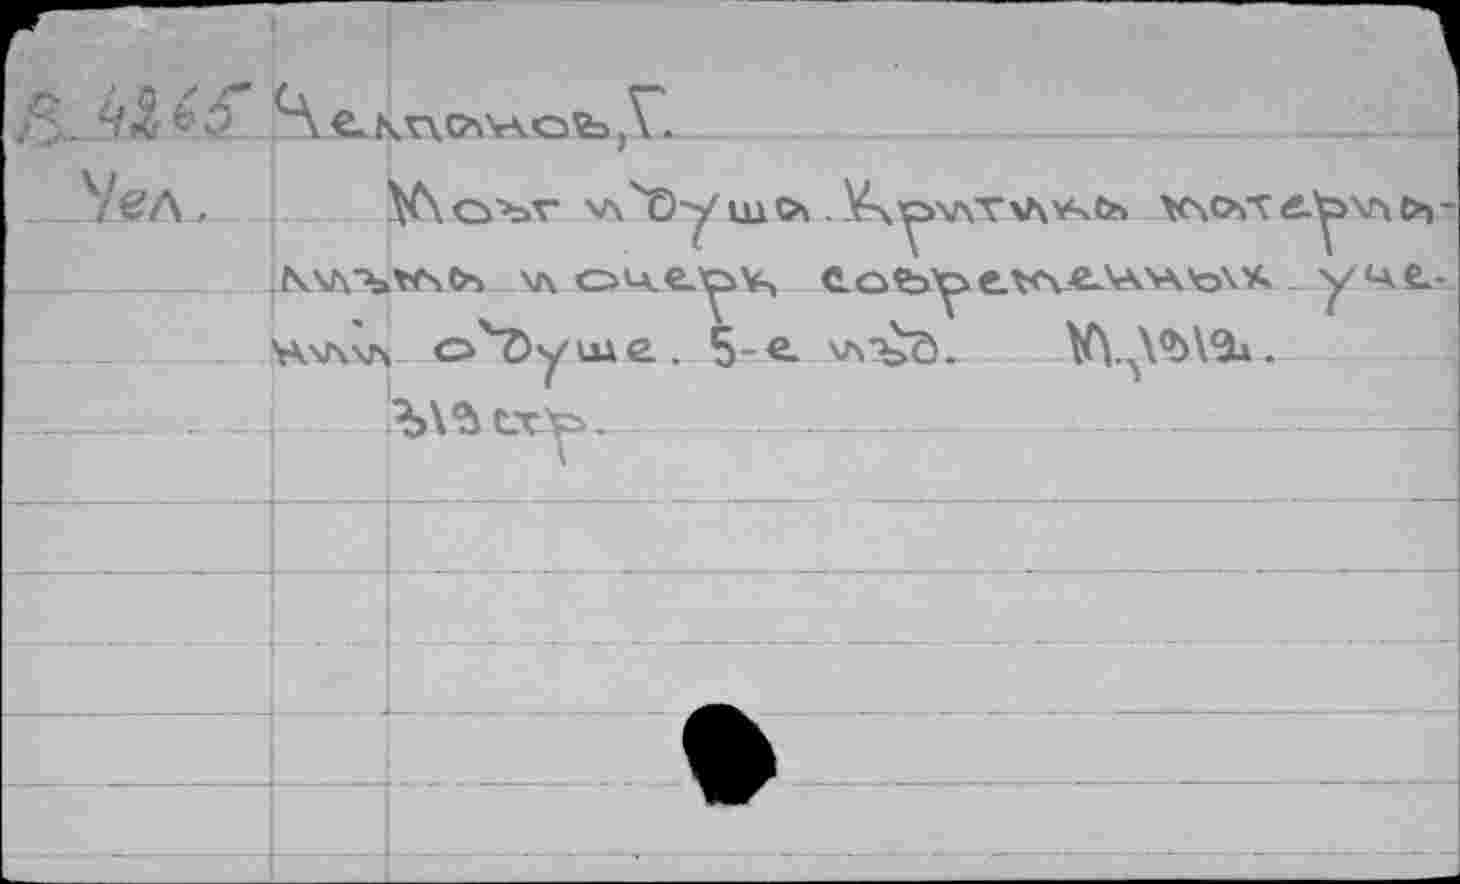 В 4265 Челпанов, Г.
Чел. Мозг и душа. Критика материа-
лизма и очерк современных уче-
ний о душе. 5-е изд. М., 1912.
319 стр.